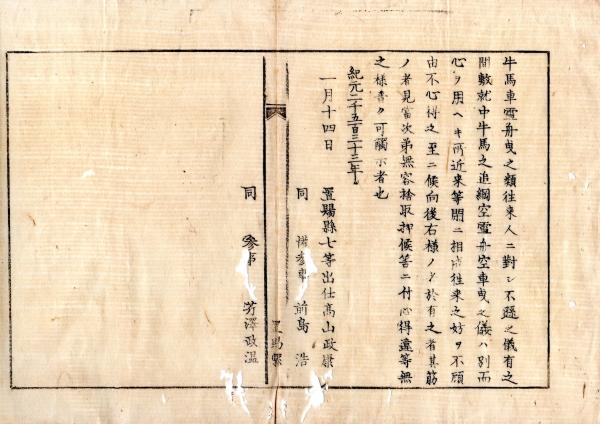 牛馬車雪舟曳之類往来人ニ對シ不遜之儀有之
間敷就中牛馬之追綱空雪舟空車曳之儀ハ別而
心ヲ用ヘキ所近来等閑ニ相成往来之妨ヲ不顧
由不心得之至ニ候向後右様ノ者於有之者其筋
ノ者見當次第無容捨取押候筈ニ付心得違等無
之様書ク可觸示者也
紀元二千五百三十三年
一月十四日
置賜縣七等出仕高山政康
同 参事 前島 浩
同 参事 芳澤政温
置賜縣